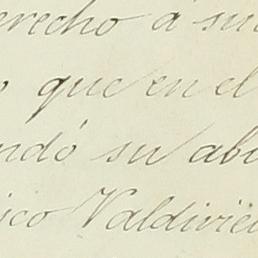 derecho á su
que en el
ndó su abu
ico Valdivie